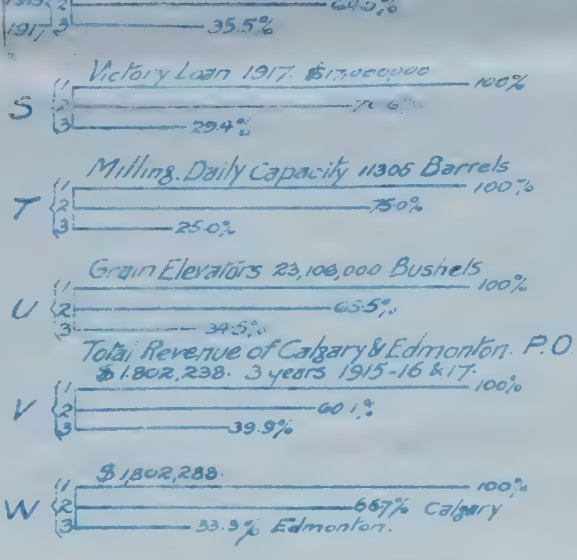 1917 3 35.5%
Victory Loan 1917. $17,000,000
1 100%
S 2
3 29.4%
Milling. Daily Capacity 11305 Barrels
1 100%
T 2 75.0%
3 25.0%
Grain Elevators 23,106,000 Bushels
1 100%
U 2 65.5%
3 34.5%
Total Revenue of Calgary & Edmonton. P.O.
$1,802,238. 3 years 1915-16 & 17.
1 100%
V 2 60.1%
3 39.9%
$1,802,288.
1 100%
W 2 66.7% Calgary
3 33.3% Edmonton.